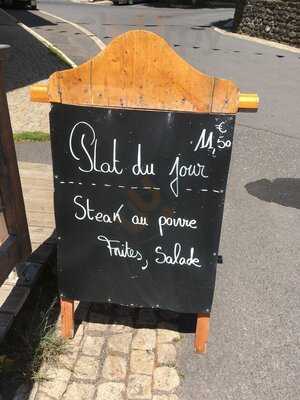 Plat du jour 11€50
Steak au poivre
Frites, Salade